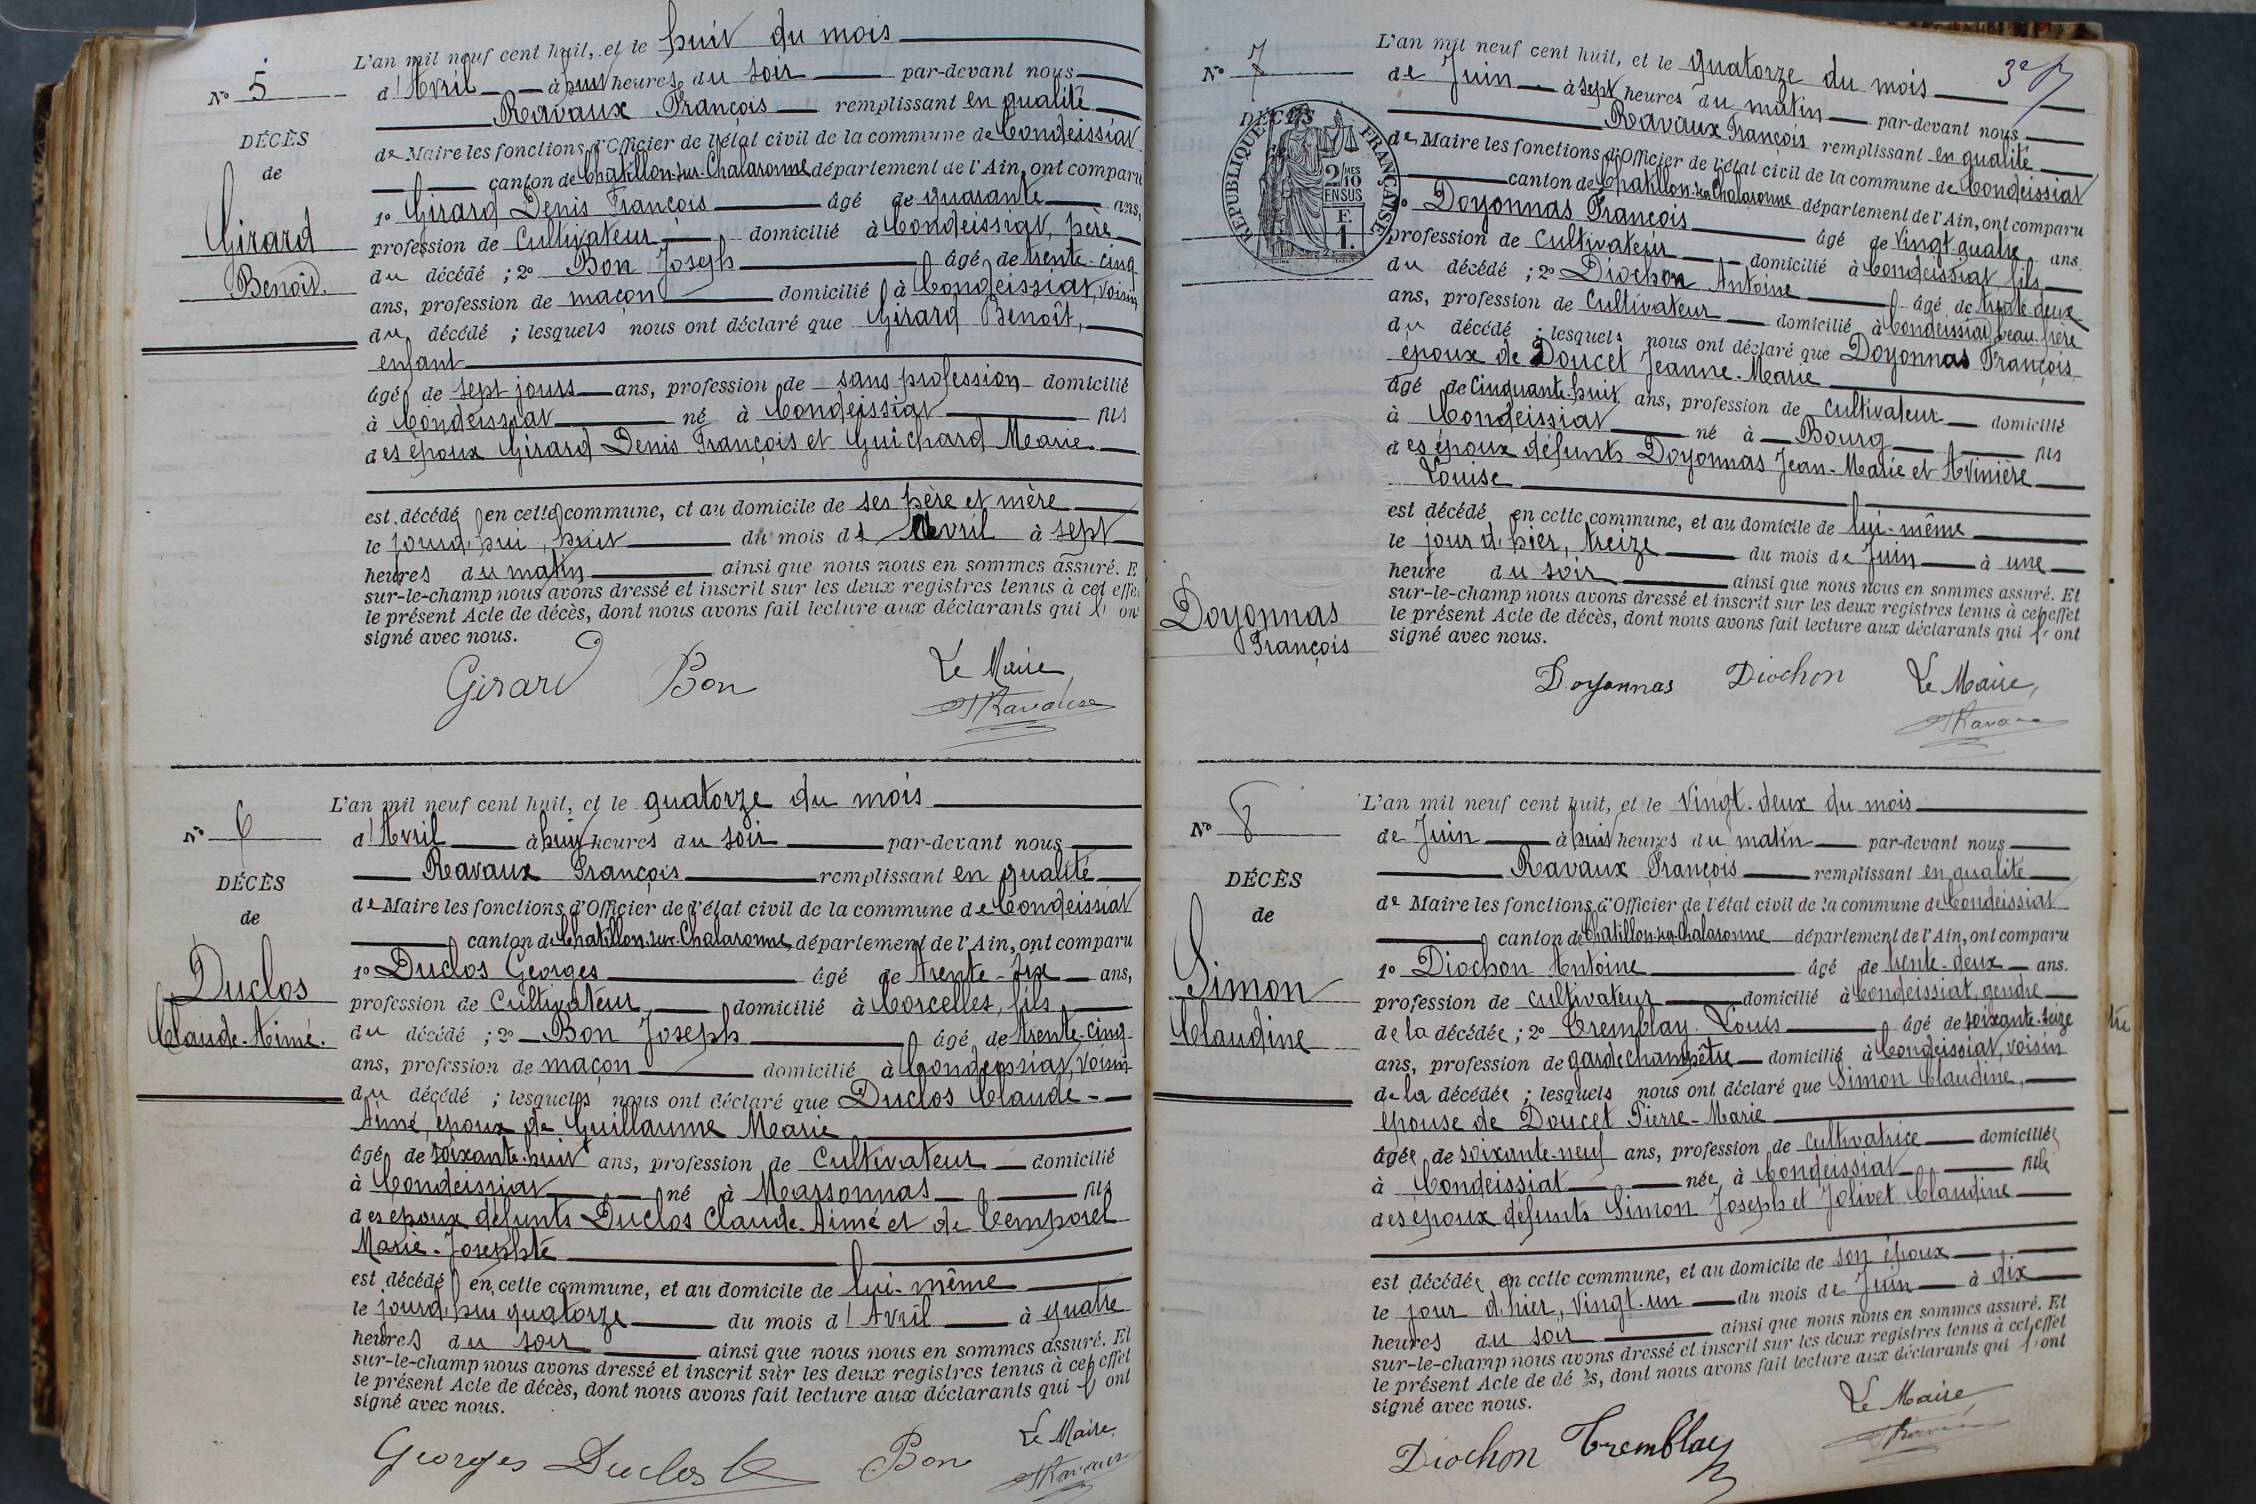 L'an mil neuf cent huit, et le huit du mois
N° 5
d'Avril à huit heures du soir par-devant nous
Ravaux François remplissant en qualité
DÉCÈS
de Maire les fonctions d'Officier de l'état civil de la commune de Condeissiat
de
canton de Châtillon-sur-Chalaronne département de l'Ain, ont comparu
1° Girard Denis François âgé de quarante ans,
Girard
profession de Cultivateur domicilié à Condeissiat, père
du décédé ; 2° Bon Joseph âgé de trente-cinq
Benoît.
ans, profession de maçon domicilié à Condeissiat, voisin
du décédé ; lesquels nous ont déclaré que Girard Benoît,
enfant
âgé de sept jours ans, profession de sans profession domicilié
à Condeissiat né à Condeissiat fils
des époux Girard Denis François et Guichard Marie
est décédé en cette commune, et au domicile de ses père et mère
le jourd'hui, huit du mois d' Avril à sept
heures du matin ainsi que nous nous en sommes assuré. E
sur-le-champ nous avons dressé et inscrit sur les deux registres tenus à cet effe
le présent Acte de décès, dont nous avons fait lecture aux déclarants qui l' on
signé avec nous.
Girard Bon Le Maire,
Ravaux
L'an mil neuf cent huit, et le quatorze du mois
N° 6
d'Avril à huit heures du soir par-devant nous
Ravaux François remplissant en qualité
DÉCÈS
de Maire les fonctions d'Officier de l'état civil de la commune de Condeissiat
de
canton de Châtillon-sur-Chalaronne département de l'Ain, ont comparu
1° Duclos Georges âgé de trente-six ans,
Duclos
profession de Cultivateur domicilié à Corcelles, fils
Claude-Aimé.
du décédé ; 2° Bon Joseph âgé de trente-cinq
ans, profession de maçon domicilié à Condeissiat, voisin
du décédé ; lesquels nous ont déclaré que Duclos Claude-
Aimé, époux de Guillaume Marie
âgé de soixante-huit ans, profession de Cultivateur domicilié
à Condeissiat né à Marsonnas fils
des époux défunts Duclos Claude-Aimé et de Temporel
Marie-Josephte
est décédé en cette commune, et au domicile de lui-même
le jourd'hui quatorze du mois d'Avril à quatre
heures du soir ainsi que nous nous en sommes assuré. Et
sur-le-champ nous avons dressé et inscrit sur les deux registres tenus à cet effet
le présent Acte de décès, dont nous avons fait lecture aux déclarants qui l' ont
signé avec nous.
Georges Duclos Bon Le Maire,
Ravaux
L'an mil neuf cent huit, et le quatorze du mois
3e
N° 7
de Juin à sept heures du matin par-devant nous
Ravaux François remplissant en qualité
DÉCÈS
RÉPUBLIQUE FRANÇAISE
2/10MES
EN SUS
F.
1.
de Maire les fonctions d'Officier de l'état civil de la commune de Condeissiat
canton de Châtillon-sur-Chalaronne département de l'Ain, ont comparu
° Doyonnas François âgé de vingt quatre ans.
profession de Cultivateur domicilié à Condeissiat, fils
du décédé ; 2° Diochon Antoine âgé de trente-deux
ans, profession de Cultivateur domicilié à Condeissiat, beau-frère
du décédé ; lesquels nous ont déclaré que Doyonnas François
époux de Doucet Jeanne-Marie
âgé de Cinquante-huit ans, profession de Cultivateur domicilié
à Condeissiat né à Bourg fils
des époux défunts Doyonnas Jean-Marie et Avinière
Louise
est décédé en cette commune, et au domicile de lui-même
le jour d'hier, treize du mois de Juin à une
heure du soir ainsi que nous nous en sommes assuré. Et
Doyonnas
François
sur-le-champ nous avons dressé et inscrit sur les deux registres tenus à cet effet
le présent Acte de décès, dont nous avons fait lecture aux déclarants qui l' ont
signé avec nous.
Doyonnas Diochon Le Maire,
Ravaux
L'an mil neuf cent huit, et le vingt-deux du mois
N° 8
de Juin à huit heures du matin par-devant nous
Ravaux François remplissant en qualité
DÉCÈS
de Maire les fonctions d'Officier de l'état civil de la commune de Condeissiat
de
canton de Châtillon-sur-Chalaronne département de l'Ain, ont comparu
1° Diochon Antoine âgé de trente-deux ans.
Simon
profession de cultivateur domicilié à Condeissiat, gendre
Claudine
de la décédée ; 2° Tremblay Louis âgé de soixante-seize
ans, profession de garde champêtre domicilié à Condeissiat, voisin
de la décédée ; lesquels nous ont déclaré que Simon Claudine,
épouse de Doucet Pierre-Marie
âgée de soixante-neuf ans, profession de cultivatrice domiciliée
à Condeissiat née à Condeissiat fille
des époux défunts Simon Joseph et Jolivet Claudine
est décédée en cette commune, et au domicile de son époux
le jour d'hier, vingt-un du mois de Juin à dix
heures du soir ainsi que nous nous en sommes assuré. Et
sur-le-champ nous avons dressé et inscrit sur les deux registres tenus à cet effet
le présent Acte de décès, dont nous avons fait lecture aux déclarants qui l' ont
signé avec nous.
Diochon Tremblay Le Maire,
Ravaux